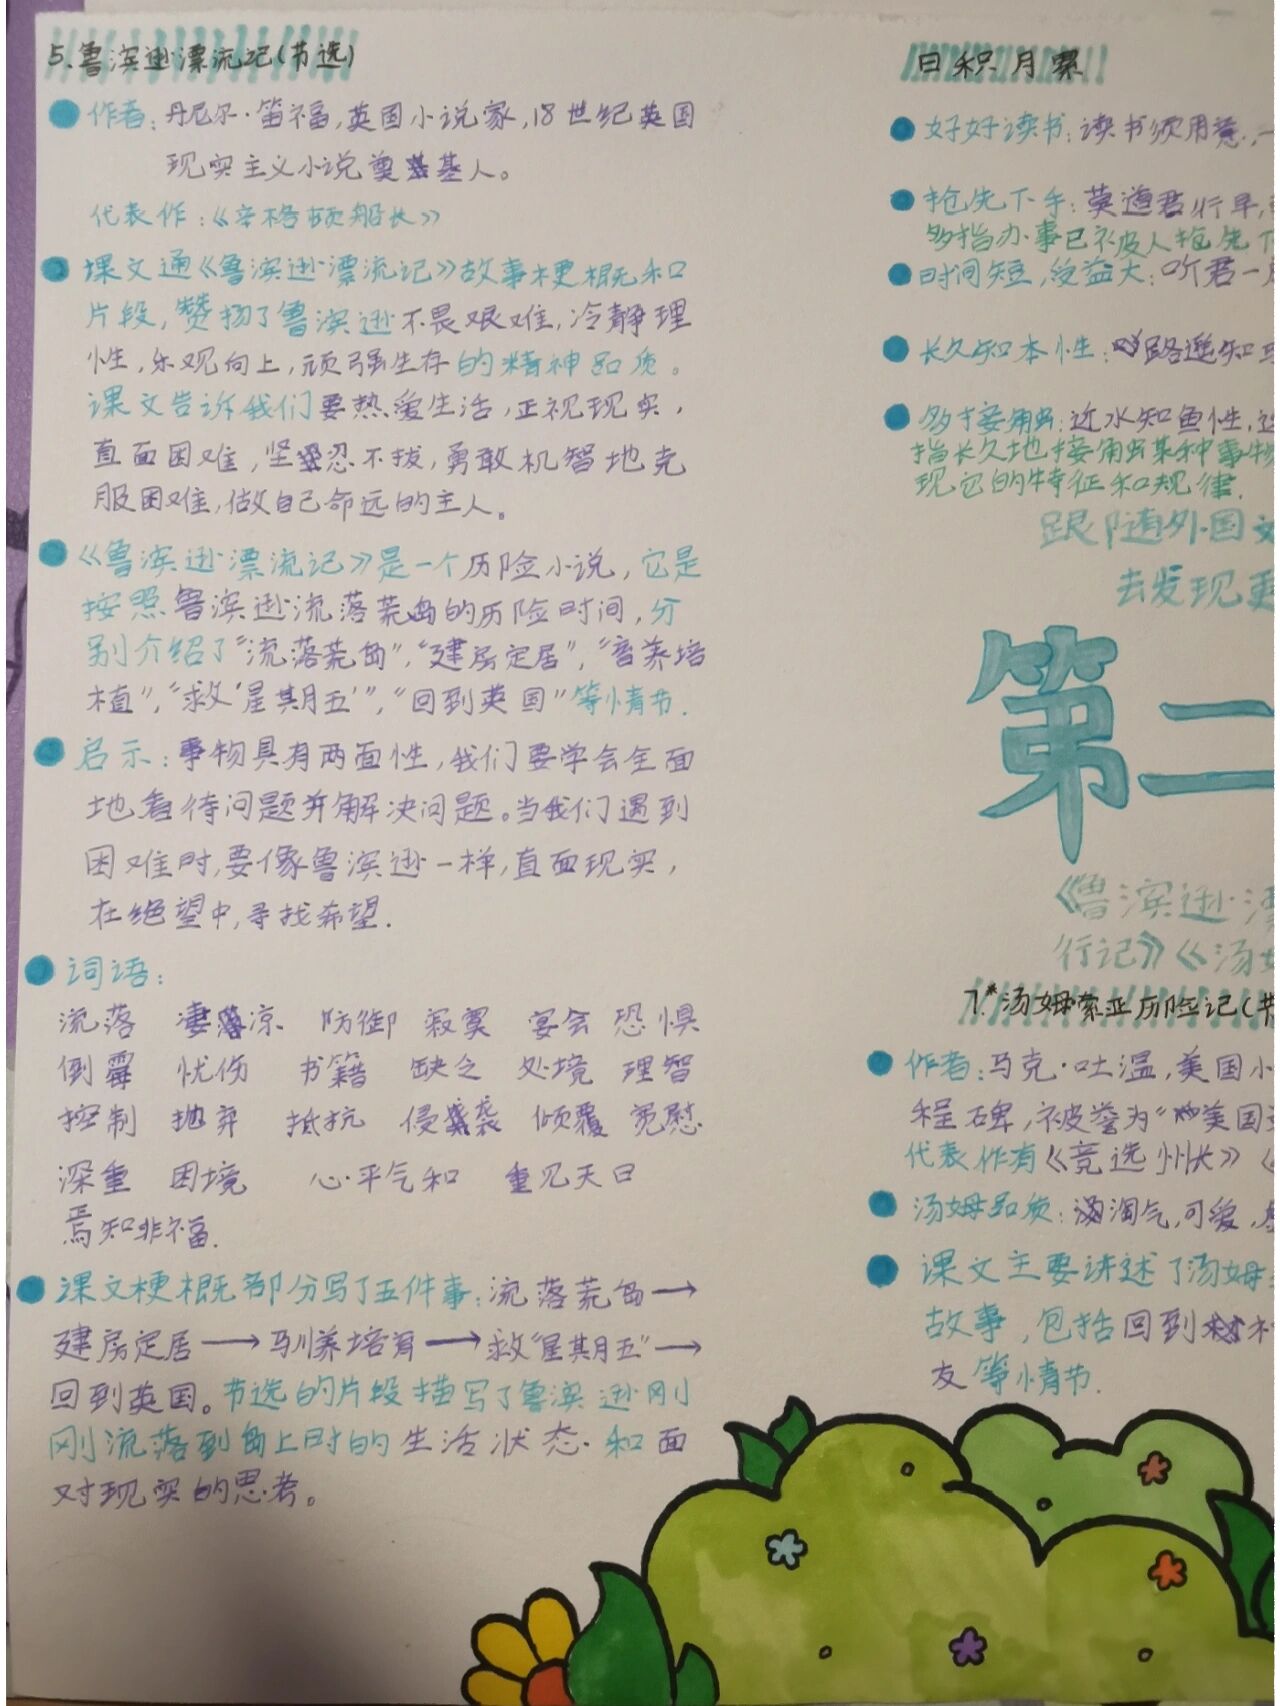 5.鲁滨逊漂流记(节选)
作者:丹尼尔·笛福,英国小说家,18世纪英国
现实主义小说奠基人。
代表作:《辛格顿船长》
课文通《鲁滨逊漂流记》故事梗概和
片段,赞扬了鲁滨逊不畏艰难,冷静理
性,乐观向上,顽强生存的精神品质。
课文告诉我们要热爱生活,正视现实,
直面困难,坚忍不拔,勇敢机智地克
服困难,做自己命运的主人。
《鲁滨逊漂流记》是一个历险小说,它是
按照鲁滨逊流落荒岛的历险时间,分
别介绍了“流落荒岛”,“建房定居”,“畜养培
植”,“救‘星期五’”,“回到英国”等情节.
启示:事物具有两面性,我们要学会全面
地看待问题并解决问题。当我们遇到
困难时,要像鲁滨逊一样,直面现实,
在绝望中,寻找希望.
词语:
流落 凄凉 防御 寂寞 宴会 恐惧
倒霉 忧伤 书籍 缺乏 处境 理智
控制 抛弃 抵抗 侵袭 倾覆 宽慰
深重 困境 心平气和 重见天日
焉知非福.
课文梗概部分写了五件事:流落荒岛→
建房定居→驯养培育→救“星期五”→
回到英国。节选的片段描写了鲁滨逊刚
刚流落到岛上时的生活状态和面
对现实的思考。
日积月累
好好读书:读书须用意,一
抢先下手:莫道君行早,
多指办事已被人抢先下
时间短,受益大:听君一
长久知本性:路遥知马
多接触:近水知鱼性,近
指长久地接触某种事物
现它的特征和规律.
跟随外国文
去发现更
第二
《鲁滨逊漂
行记》《汤姆
7.*汤姆索亚历险记(节
作者:马克·吐温,美国小
程碑,被誉为“美国
代表作有《竞选州长》《
汤姆品质:淘气,可爱,
课文主要讲述了汤姆
故事,包括回到村
友等情节.